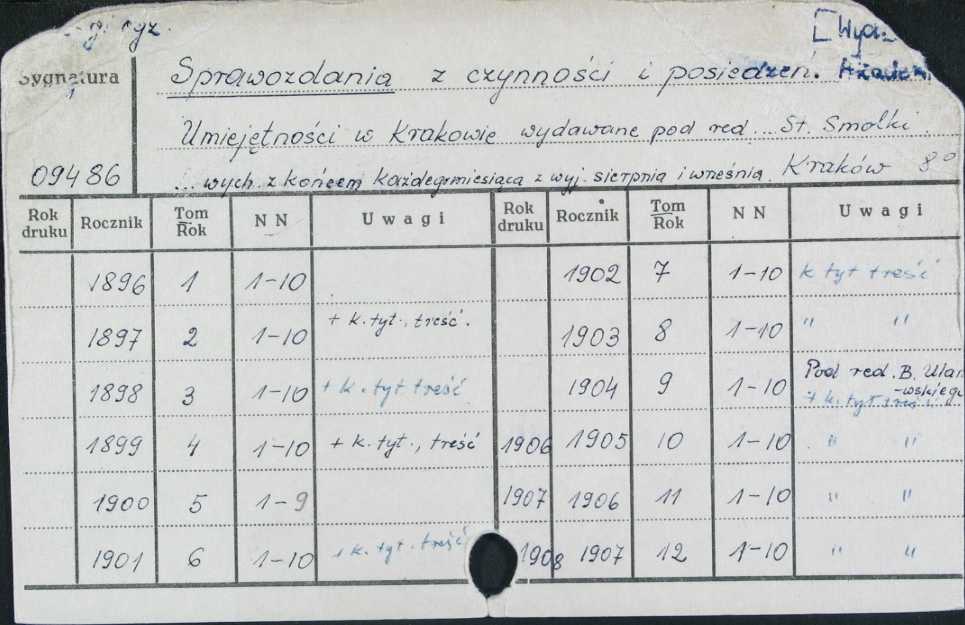 [Wyd.
Sygnatura
Sprawozdania z czynności i posiedzeń. Akadem
Umiejętności w Krakowie wydawane pod red... St. Smolki.
09486
...wych. z końcem każdego miesiąca z wyj. sierpnia i września. Kraków 8°
Rok druku Rocznik Tom Rok NN Uwagi Rok druku Rocznik Tom Rok NN Uwagi
1896 1 1-10 1902 7 1-10 k tyt treść
1897 2 1-10 + k. tyt., treść. 1903 8 1-10 " "
1898 3 1-10 + k. tyt treść 1904 9 1-10 Pod red. B. Ulan-wskiego + k. tyt treść
1899 4 1-10 + k. tyt., treść 1906 1905 10 1-10 " "
1900 5 1-9 1907 1906 11 1-10 " "
1901 6 1-10 + k. tyt. treść 1908 1907 12 1-10 " "